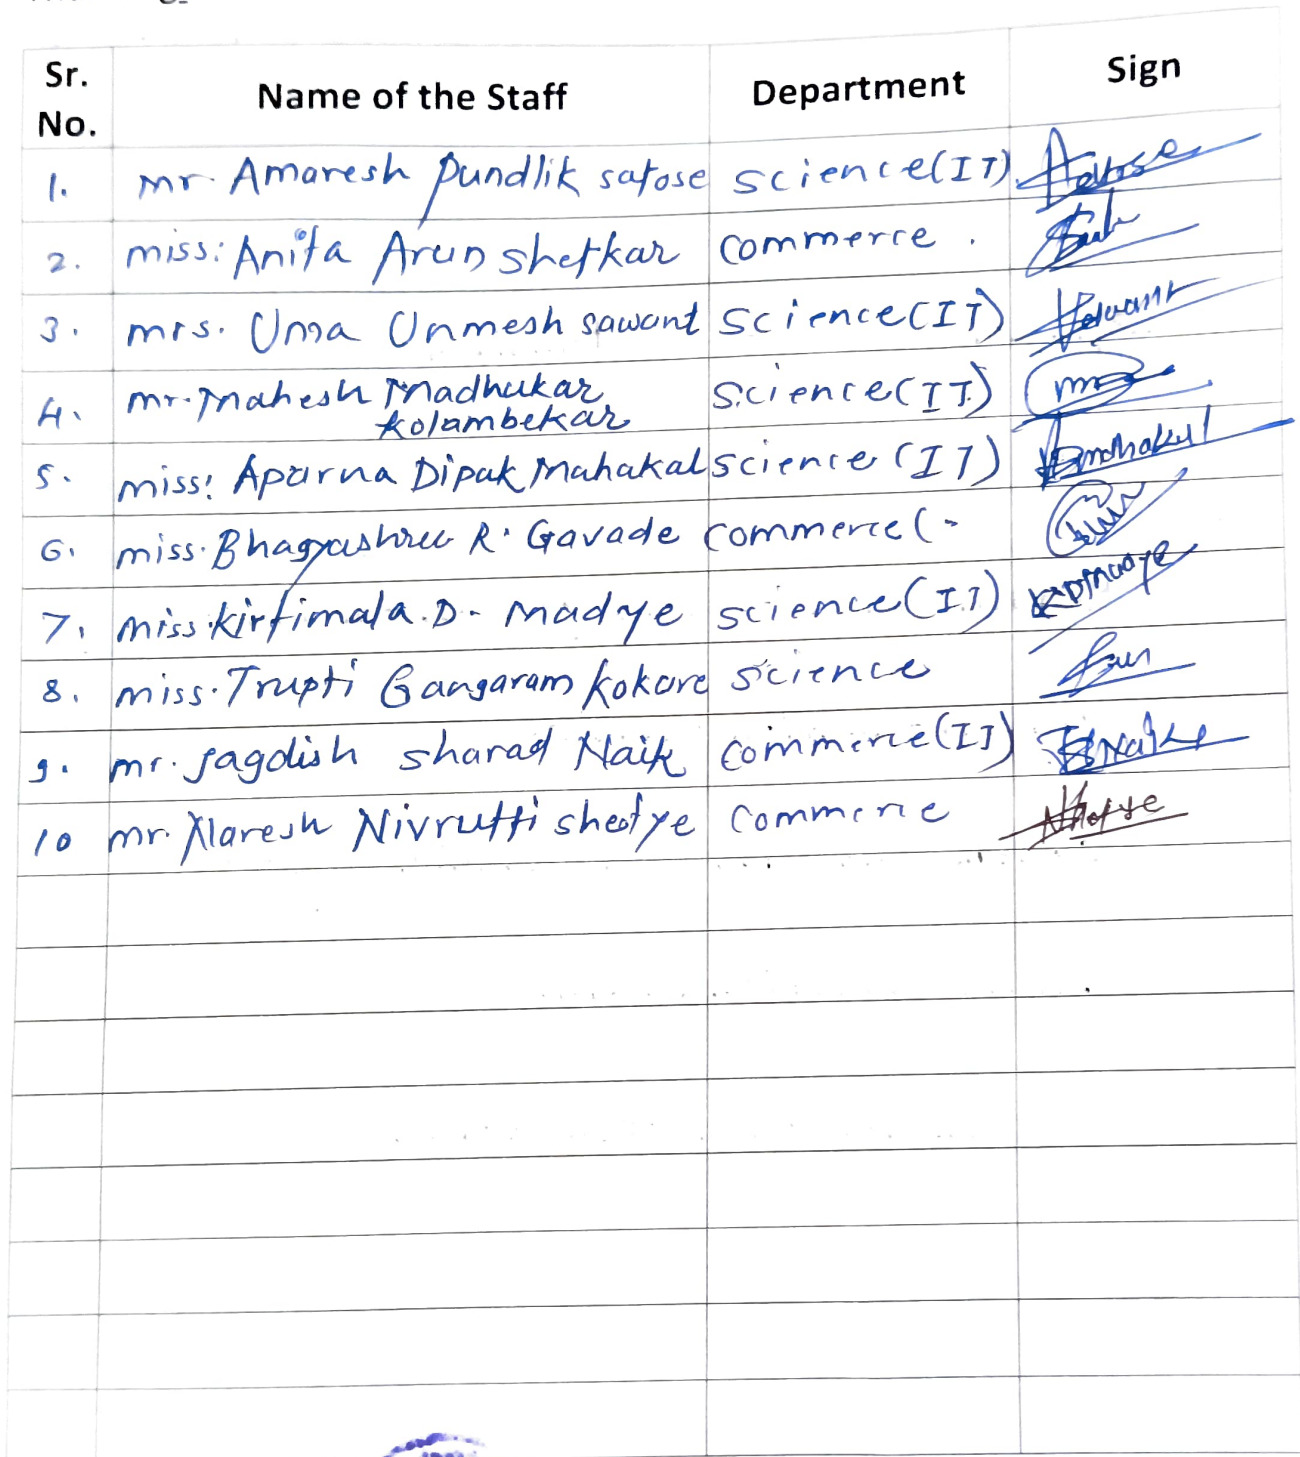 Sr. No. Name of the Staff Department Sign
1. mr. Amaresh Pundlik satose science(IT)
2. miss: Anita Arun shetkar commerce.
3. mrs. Uma Unmesh sawant science(IT)
4. mr. Mahesh Madhukar kolambekar science(IT)
5. miss: Aparna Dipak Mahakal science (IT)
6. miss. Bhagyashree R. Gavade commerce (-
7. miss. kirtimala. D. Madye science(IT)
8. miss. Trupti Gangaram kokare science
9. mr. Jagdish sharad Naik commerce(IT)
10 mr. Naresh Nivrutti shetye commerce